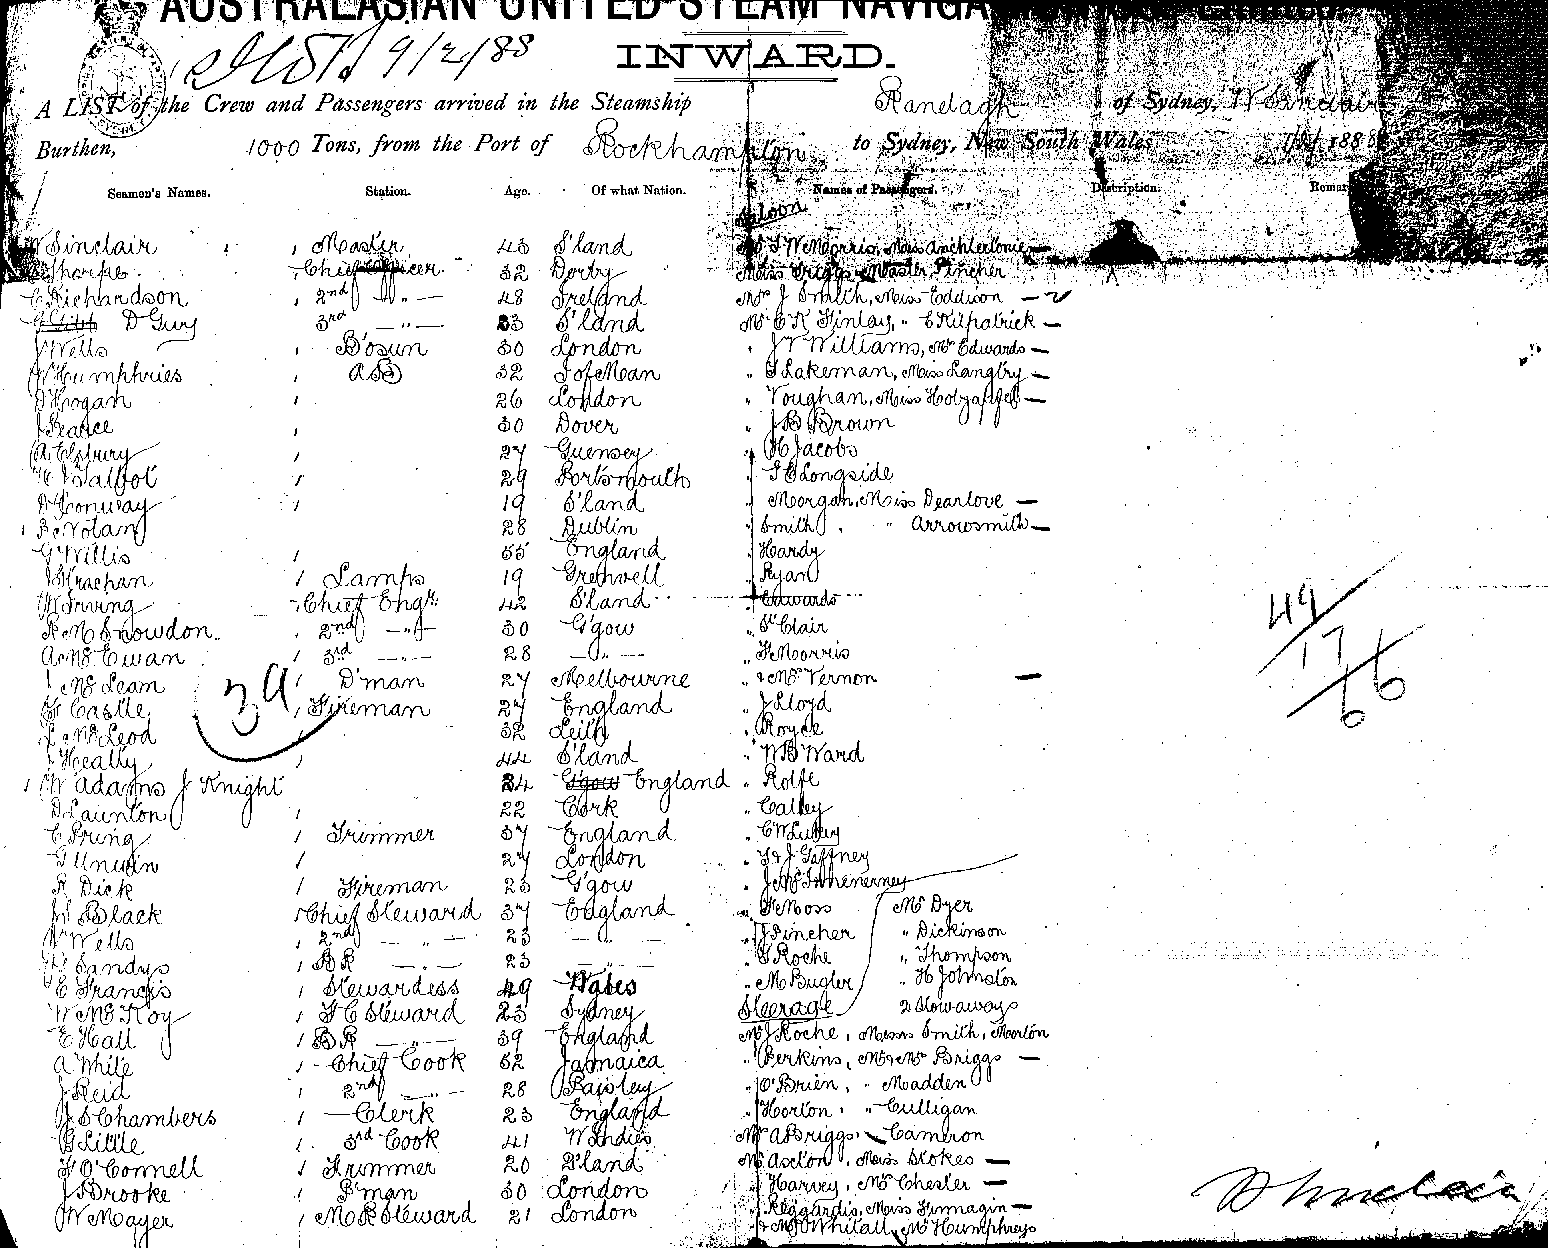 AUSTRALASIAN UNITED STEAM NAVIGA
9/2/88
INWARD.
A LIST of the Crew and Passengers arrived in the Steamship Ranelagh of Sydney, W Sinclair
Burthen, 1000 Tons, from the Port of Rockhampton to Sydney, New South Wales 188
Seamen's Names. Station. Age. Of what Nation. Names of Passengers. Description. Remar
Saloon
W Sinclair Master 43 S'land
Thorpe Chief Officer 32 Derby Miss Griggs Master Pincher
C Richardson 2nd —„— 48 Ireland Mr J Smith, Miss Eddison —
D Guy 3rd —„— 33 S'land Mr C K Finlay, „ C Kilpatrick —
J Wells B'osun 30 London „ J W Williams, Mr Edwards —
W Humphries AB 32 I of Man „ G Lakeman, Miss Langby —
D Hogan 26 London „ Voughan, Miss
J Pearce 30 Dover „ J B Brown
A Elsbury 27 Guensey „ H Jacobs
Talbot 29 Portsmouth „ Longside
D Conway 19 S'land „ Morgan, Miss Dearlove —
Nolan 28 Dublin „ Smith, „ Arrowsmith —
G Willis 55 England „ Hardy
Strachan Lamps 19 „ Ryan
W Irving Chief Engr. 42 S'land „ Edwards
R M Snowdon 2nd —„— 30 G'gow „ St Clair
A McEwan 3rd —„— 28 —„— „ F Morris
McLeam D'man 27 Melbourne „ & Mrs Vernon —
Castle Fireman 27 England „ J Lloyd
McLeod 32 Leith „ Royce
J Heally 44 S'land „ W B Ward
W Adams J Knight 34 G'gow England „ Rolfe
D Launton 22 Cork „ Calley
C Pring Trimmer 37 England „ C W
G Unwin 27 London „ T & J Gaffney
R Dick Fireman 23 G'gow
Black Chief Steward 37 England „ F Moss Mr Dyer
Wells 2nd —„— 23 —„— „ J Pincher „ Dickinson
Sandys BR —„— 23 —„— „ G Roche „ Thompson
E Francis Stewardess 49 Wales „ M Bugler „ H Johnston
W McKoy F C Steward 23 Sydney Steerage 2 Stowaways
E Hall BR —„— 39 England Mr J Roche, Messrs Smith, Morton
A White Chief Cook 52 Jamaica „ Perkins, Mr & Mrs Briggs —
J Reid 2nd —„— 28 Paisley „ O'Brien, „ Madden
J S Chambers Clerk 23 England „ Horton, „ Culligan
G Little 3rd Cook 41 W Indies Mr A Briggs, Cameron
F O'Connell Trimmer 20 Mr Aseton, Miss Stokes —
J Brooke F'man 30 London „ J Harvey, Mrs Chester —
W Mayer M R Steward 21 London „ Reggardis, Miss Finnagin —
Whitall, Mr Humphreys
39
49
17
66
W Sinclair